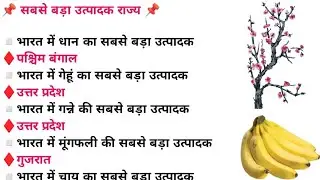 📌 सबसे बड़ा उत्पादक राज्य 📌
◽भारत में धान का सबसे बड़ा उत्पादक
♦️पश्चिम बंगाल
◽भारत में गेहूं का सबसे बड़ा उत्पादक
♦️उत्तर प्रदेश
◽भारत में गन्ने की सबसे बड़ा उत्पादक
♦️उत्तर प्रदेश
◽भारत में मूंगफली की सबसे बड़ा उत्पादक
♦️गुजरात
◽भारत में चाय का सबसे बड़ा उत्पादक